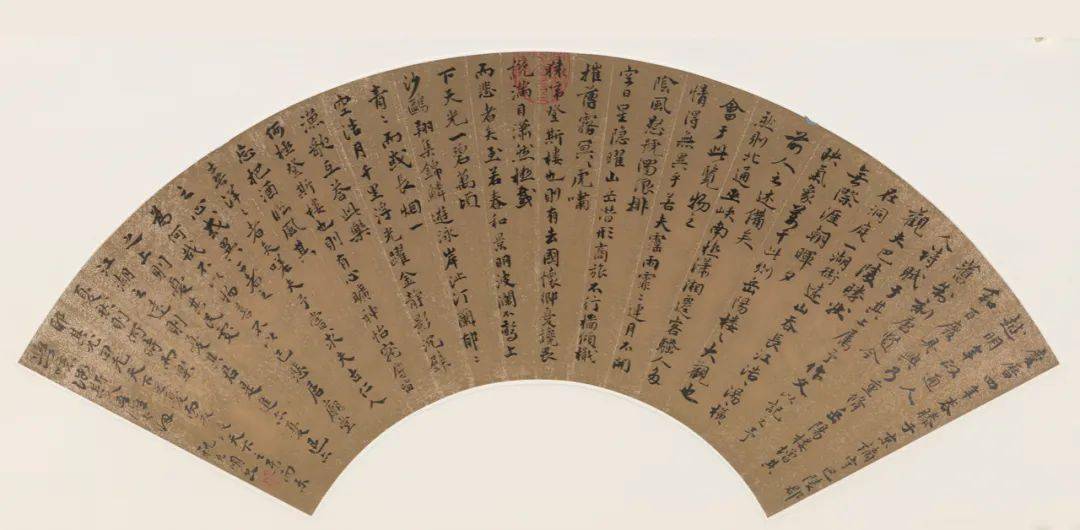 慶曆四年春滕子京謫守巴陵郡
越明年政通
人和百廢具興乃重修岳陽樓增其
舊制刻唐賢今人
詩賦于其上屬予作文以記之予
觀夫巴陵勝狀
在洞庭一湖銜遠山吞長江浩浩湯湯橫
無際涯朝暉夕
陰氣象萬千此則岳陽樓之大觀也
前人之述備矣
然則北通巫峽南極瀟湘遷客騷人多
會于此覽物之
情得無異乎若夫霪雨霏〻連月不開
陰風怒號濁浪排
空日星隱曜山岳潛形商旅不行檣傾檝
摧薄霧冥〻虎嘯
猿啼登斯樓也則有去國懷鄉憂讒畏
譏滿目瀟然極感
而悲者矣至若春和景明波瀾不驚上
下天光一碧萬頃
沙鷗翔集錦鱗遊泳岸芷汀蘭郁〻
青〻而或長烟一
空浩月千里浮光躍金靜影沉璧
漁歌互答此樂
何極登斯樓也則有心曠神怡寵辱皆
忘把酒臨風其
喜洋〻者矣嗟夫予嘗求古仁人
之心或異二者之
為何哉不以物喜不以己悲居廟堂
之上則憂其民處
江湖之遠則憂其君是進亦憂退亦
憂然則何時而樂
耶其必曰先天下之憂而憂後天下之樂而樂